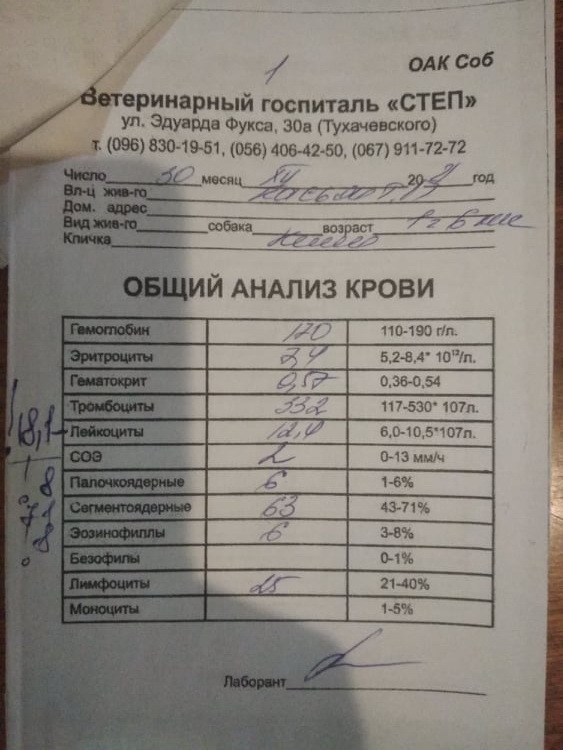 1
ОАК Соб
Ветеринарный госпиталь «СТЕП»
ул. Эдуарда Фукса, 30а (Тухачевского)
т. (096) 830-19-51, (056) 406-42-50, (067) 911-72-72
Число 30 месяц XII 20 год
Вл-ц жив-го
Дом. адрес
Вид жив-го собака возраст 1 г 6 мес
Кличка
ОБЩИЙ АНАЛИЗ КРОВИ
Гемоглобин 170 110-190 г/л.
Эритроциты 7,4 5,2-8,4* 10¹²/л.
Гематокрит 0,57 0,36-0,54
Тромбоциты 332 117-530* 107л.
Лейкоциты 12,4 6,0-10,5*107л.
СОЭ 2 0-13 мм/ч
Палочкоядерные 6 1-6%
Сегментоядерные 63 43-71%
Эозинофиллы 6 3-8%
Безофилы 0-1%
Лимфоциты 25 21-40%
Моноциты 1-5%
18,1
Лаборант